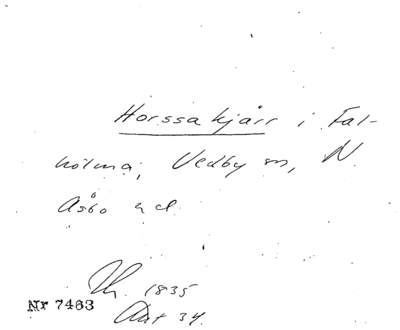 Horssakjärr i Fal-
holma, Vedby sn, N.
Åsbo hd.
1835
Nr 7463
Akt 34.